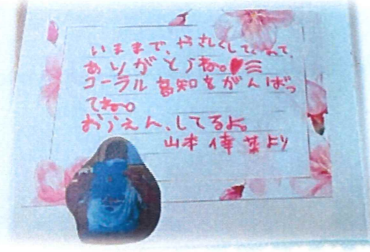 いままで、やさしくしてくれて、
ありがとうね。
コーラル高知をがんばっ
てね。
おうえん、してるよ。
山本 倖 菜より